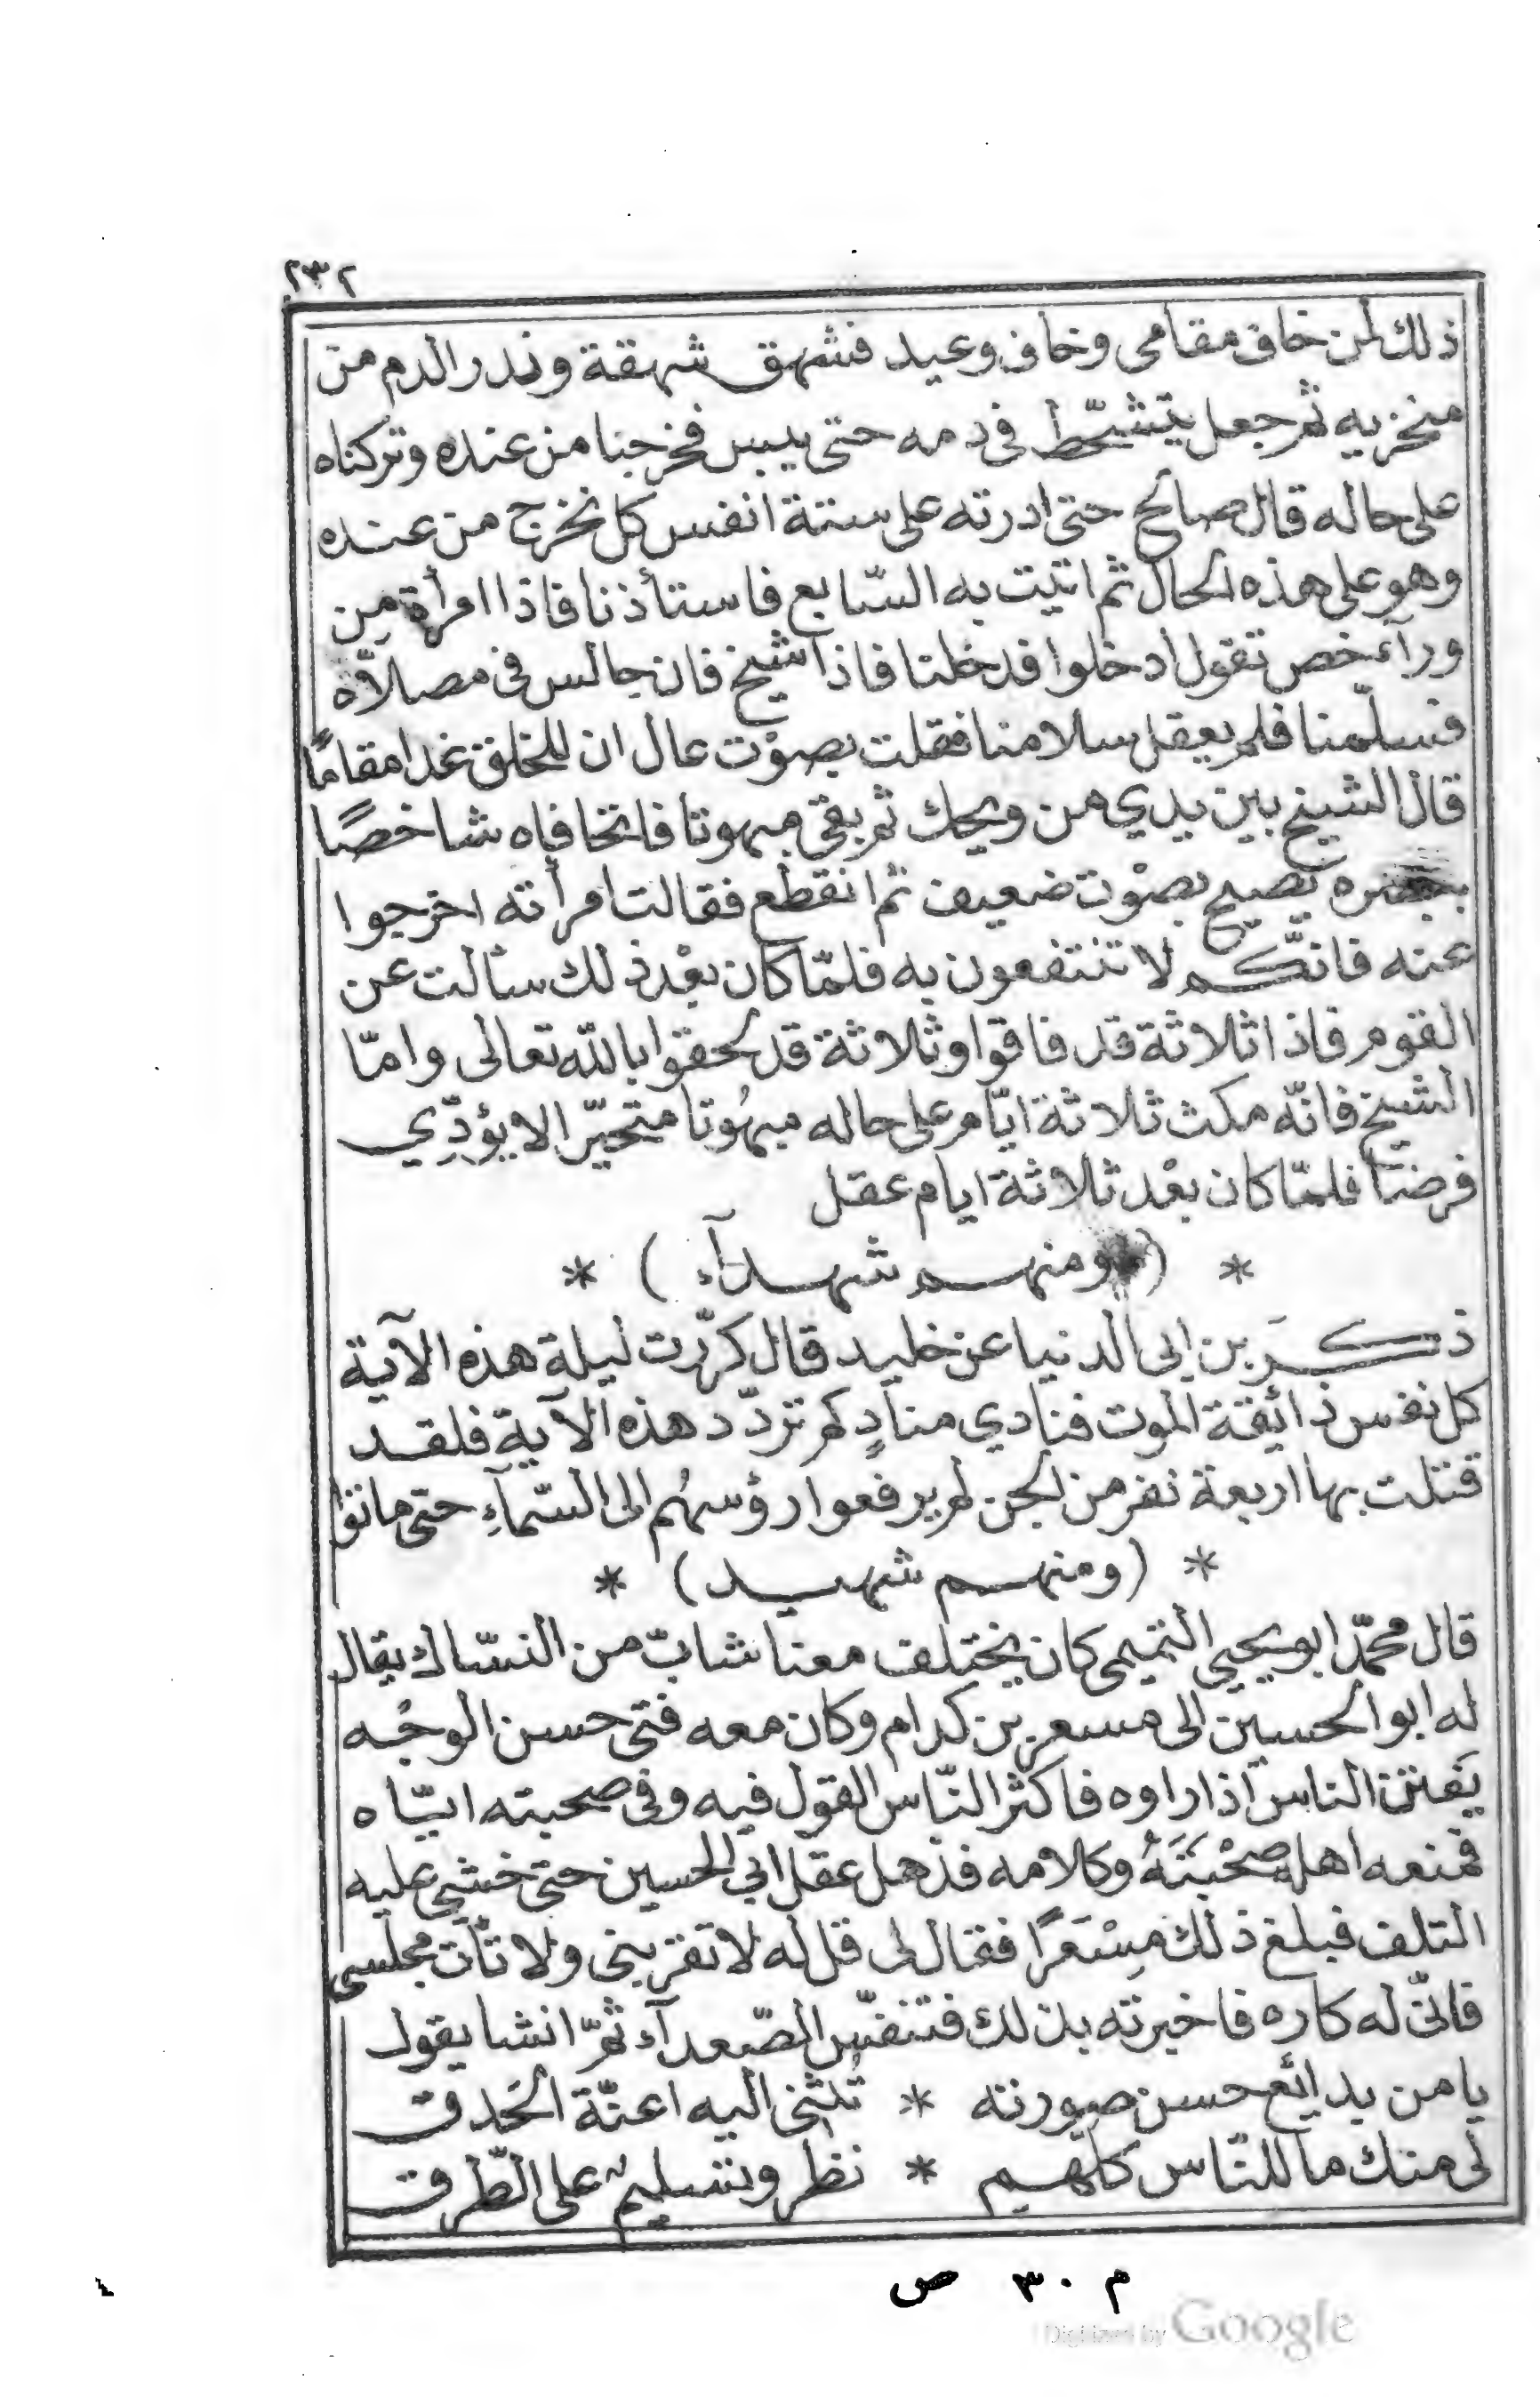 ٢٣٢
ذلك لمن خاف مقامى وخاف وعيد فشهق شهقة وندر الدم من
منخزيه ثم جعل يتشحّط فى دمه حتى يبس فخرجنا من عنده وتركناه
على حاله قال صالح حتى ادرته على ستة انفس كل نخرج من عنده
وهو على هذه الحال ثم اتيت به السّابع فاستأذنا فاذا امرأة مِن
ورآء خص تقول ادخلوا فدخلنا فاذا شيخ فان جالس فى مصلاّه
فسلّمنا فلم يعقل سلامنا فقلت بصوْت عال ان للخلق غدا مقامًا
قال الشيخ بين يدي من ويحك ثم بقى مبهوتا فاتحا فاه شاخصًا
بصره يصيح بصوْت ضعيف ثم انقطع فقالت امرأته اخرجوا
عنه فانّكم لا تنتفعون به فلمّا كان بعْد ذلك سألت عن
القوم فاذا ثلاثة قد فاقوا وثلاثة قد لحقوا بالله تعالى وامّا
الشيخ فانّه مكث ثلاثة ايّام على حاله مبهُوتا متحيّرا لا يؤدِّي
فرضا فلمّا كان بعْد ثلاثة ايام عقل
* ( ومنهم شهدآء ) *
ذكرَ بن ابى الدنيا عن خليد قال كرّرت ليلة هذه الآية
كل نفس ذائقة الموت فنادي منادٍ كم تردّد هذه الآية فلقد
قتلت بها اربعة نفر من الجن لم يرفعوا رؤسهُم الى السّمآءِ حتى ماتوا
* ( ومنهم شهيد ) *
قال محمّد ابو يحيي التميمى كان يختلف معنا شابّ من النسّاك يقال
له ابو الحسين الى مسعر بن كدام وكان معه فتى حسن الوجُه
يَفتتن الناس اذا راوه فاكثر النّاس القول فيه وفى صحبته ايّاه
فمنعه اهله صحْبَتَهُ وكلامه فذهل عقل ابي الحسين حتى خشي عليه
التلف فبلغ ذلك مِسْعَرًا فقال لى قل له لا تقربنى ولا تأت مجلسى
فانّى له كاره فاخبرته بذلك فتنفّس الصّعدآء ثمّ انشا يقول
يا من بدائع حسن صورته * تُثنى اليه اعنّة الحَدق
لى منك ما للنّاس كلّهم * نظر وتسليم على الطّرق
م ٣٠ ص
Digitized by Google